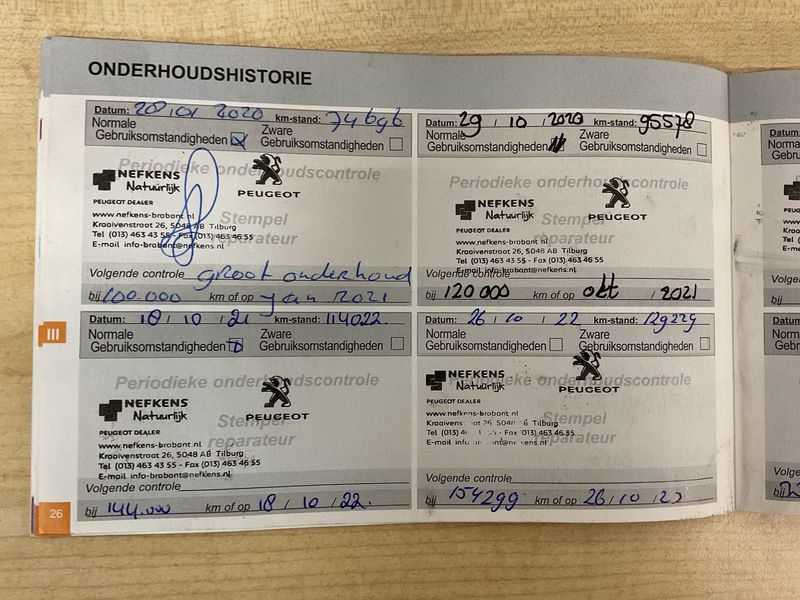 ONDERHOUDSHISTORIE
Datum: 28/01 2020 km-stand: 74696
Normale Gebruiksomstandigheden
Zware Gebruiksomstandigheden
Periodieke onderhoudscontrole
NEFKENS
Natuurlijk
PEUGEOT
PEUGEOT DEALER
www.nefkens-brabant.nl
Stempel
Kraaivenstraat 26, 5048 AB Tilburg
reparateur
Tel (013) 463 43 55 - Fax (013) 463 46 55
E-mail info-brabant@nefkens.nl
Volgende controle groot onderhoud
bij 100.000 km of op jan 2021
Datum: 29 / 10 / 2020 km-stand: 95578
Normale Gebruiksomstandigheden
Zware Gebruiksomstandigheden
Periodieke onderhoudscontrole
NEFKENS
Natuurlijk
PEUGEOT
PEUGEOT DEALER
Stempel
www.nefkens-brabant.nl
reparateur
Kraaivenstraat 26, 5048 AB Tilburg
Tel (013) 463 43 55 - Fax (013) 463 46 55
E-mail info-brabant@nefkens.nl
Volgende controle
bij 120 000 km of op okt / 2021
III
Datum: 18 / 10 / 21 km-stand: 114022
Normale Gebruiksomstandigheden
Zware Gebruiksomstandigheden
Periodieke onderhoudscontrole
NEFKENS
Natuurlijk
PEUGEOT
PEUGEOT DEALER
Stempel
www.nefkens-brabant.nl
reparateur
Kraaivenstraat 26, 5048 AB Tilburg
Tel (013) 463 43 55 - Fax (013) 463 46 55
E-mail info-brabant@nefkens.nl
Volgende controle
bij 144.000 km of op 18 / 10 / 22.
Datum: 26 / 10 / 22 km-stand: 129229
Normale Gebruiksomstandigheden
Zware Gebruiksomstandigheden
Periodieke onderhoudscontrole
NEFKENS
Natuurlijk
PEUGEOT
PEUGEOT DEALER
www.nefkens-brabant.nl
Stempel
26, 5048 AB Tilburg
reparateur
Tel (013) 463 46 55
E-mail
Volgende controle
bij 154299 km of op 26 / 10 / 23
26